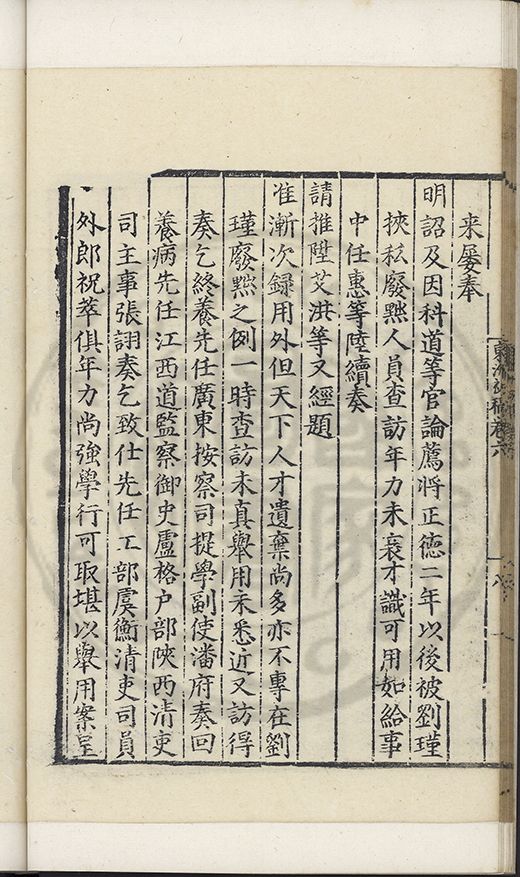 来屡奉
明詔及因科道等官論薦將正德二年以後被劉瑾
挾私廢黜人員查訪年力未衰才識可用如給事
中任惠等陸續奏
請推陞艾洪等又經題
准漸次録用外但天下人才遺棄尚多亦不專在劉
瑾廢黜之例一時查訪未真舉用未悉近又訪得
奏乞終養先任廣東按察司提學副使潘府奏回
養病先任江西道監察御史盧格户部陝西清吏
司主事張詡奏乞致仕先任工部虞衡清吏司員
外郎祝萃俱年力尚強學行可取堪以舉用案呈